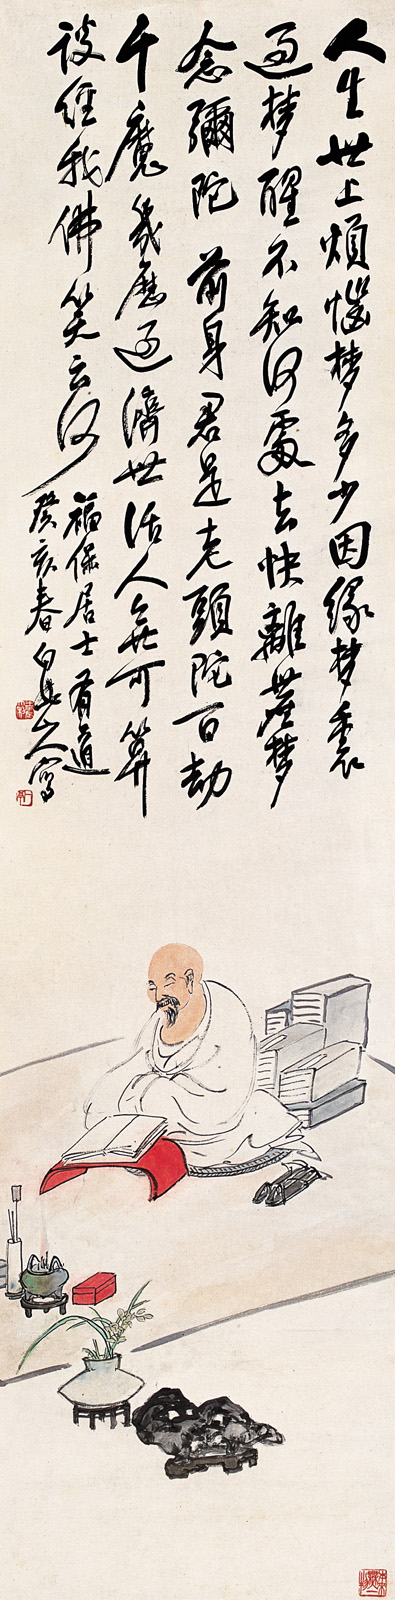 人生世上煩惱梦多少因緣梦裏
過梦醒不知何處去快離塵梦
念彌陀 前身君是老頭陀百劫
千魔幾歷過濟世活人無可算
談經我佛笑云何
福保居士有道
癸亥春白龍山人寫